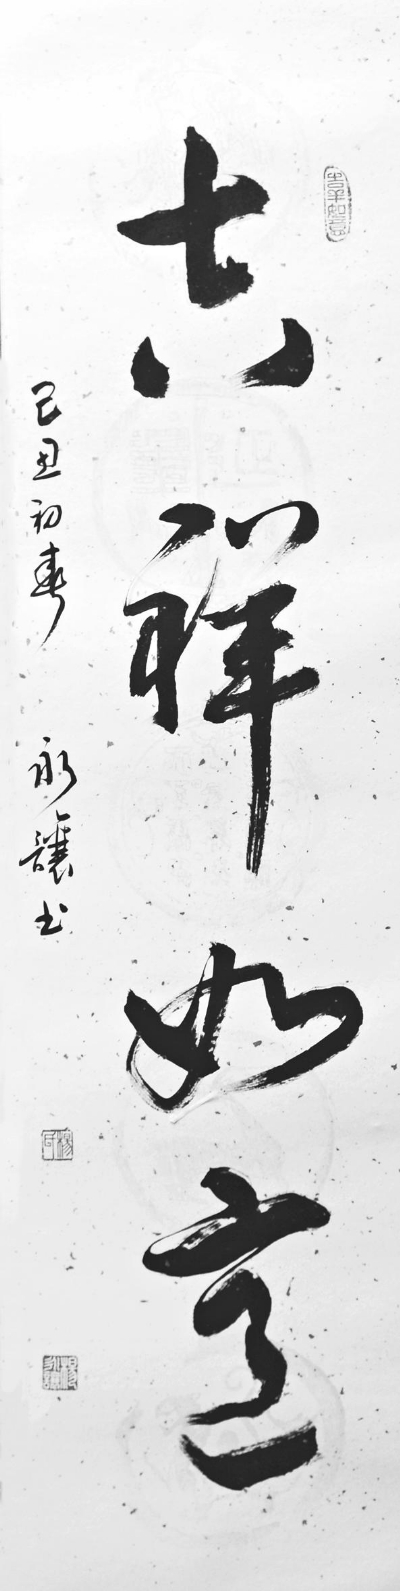 吉祥如意
己丑初春 永讓書